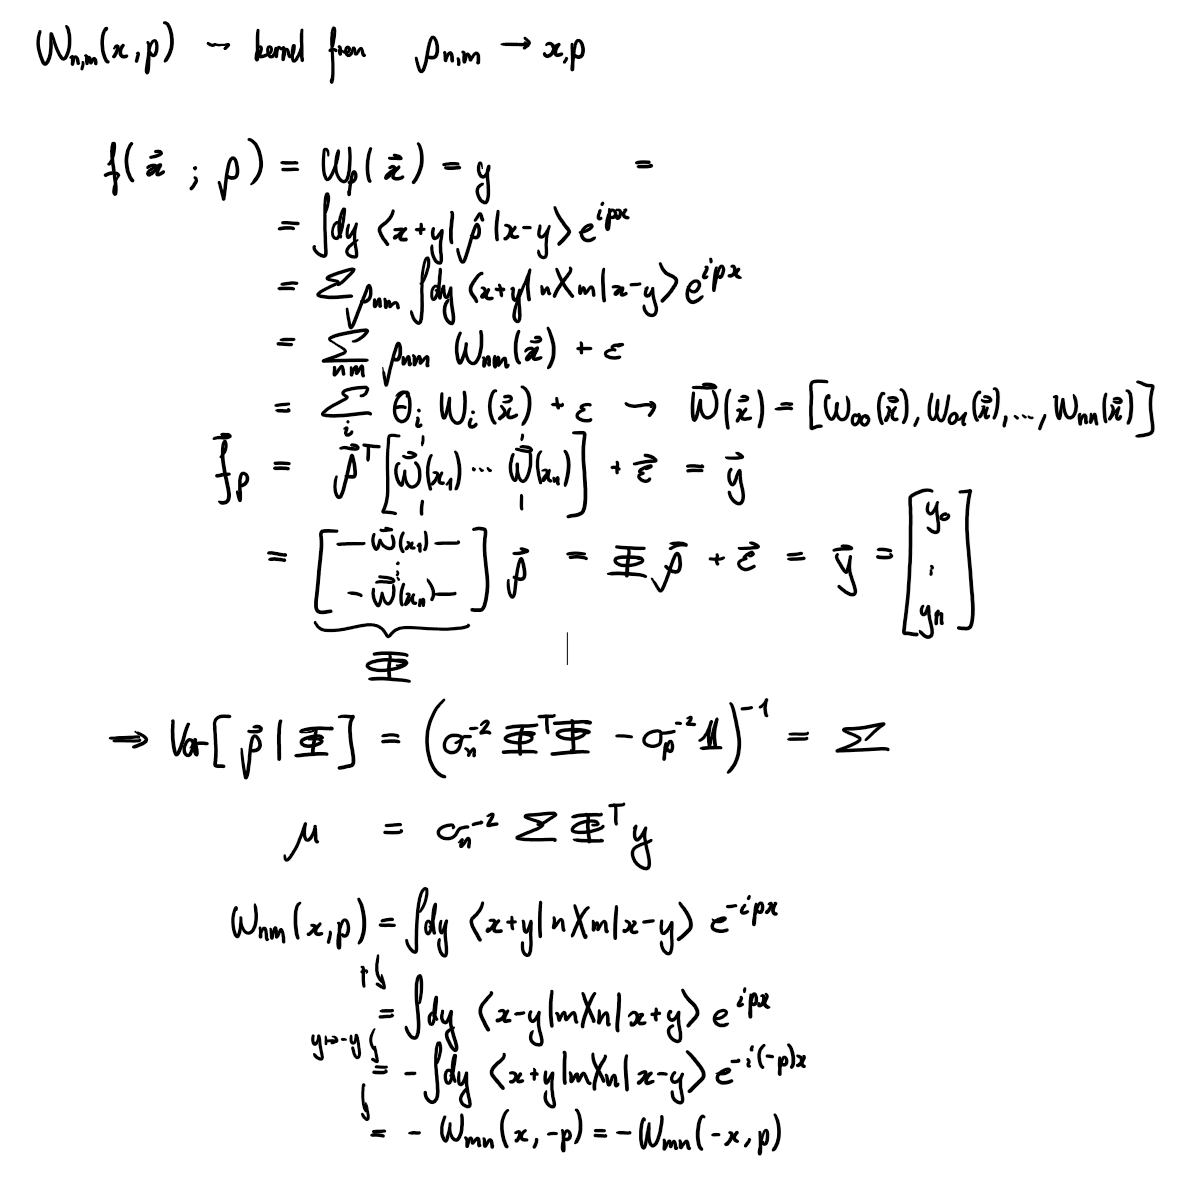 W_{n,m}(x,p) ~ kernel from ρ_{n,m} → x,p
f(x⃗ ; ρ) = W_ρ(x⃗) = y =
= ∫dy ⟨x+y|ρ̂|x-y⟩ e^{ipx}
= Σ ρ_{nm} ∫dy ⟨x+y|n⟩⟨m|x-y⟩ e^{ipx}
= Σ_{nm} ρ_{nm} W_{nm}(x⃗) + ε
= Σ_i θ_i W_i(x⃗) + ε → W⃗(x⃗) = [W_{00}(x⃗), W_{01}(x⃗), ..., W_{nn}(x⃗)]
f⃗_ρ = ρ⃗^T [W⃗(x_1) ... W⃗(x_n)] + ε⃗ = y⃗
= [— W⃗(x_1) — ⋮ - W⃗(x_n) —] ρ⃗ = Φ ρ⃗ + ε⃗ = y⃗ = [y_0 ⋮ y_n]
Φ
⇒ Var[ρ⃗ | Φ] = (σ_n^{-2} Φ^T Φ - σ_p^{-2} 𝟙)^{-1} = Σ
μ = σ_n^{-2} Σ Φ^T y
W_{nm}(x,p) = ∫dy ⟨x+y|n⟩⟨m|x-y⟩ e^{-ipx}
† = ∫dy ⟨x-y|m⟩⟨n|x+y⟩ e^{ipx}
y↦-y = - ∫dy ⟨x+y|m⟩⟨n|x-y⟩ e^{-i(-p)x}
= - W_{mn}(x,-p) = - W_{mn}(-x,p)